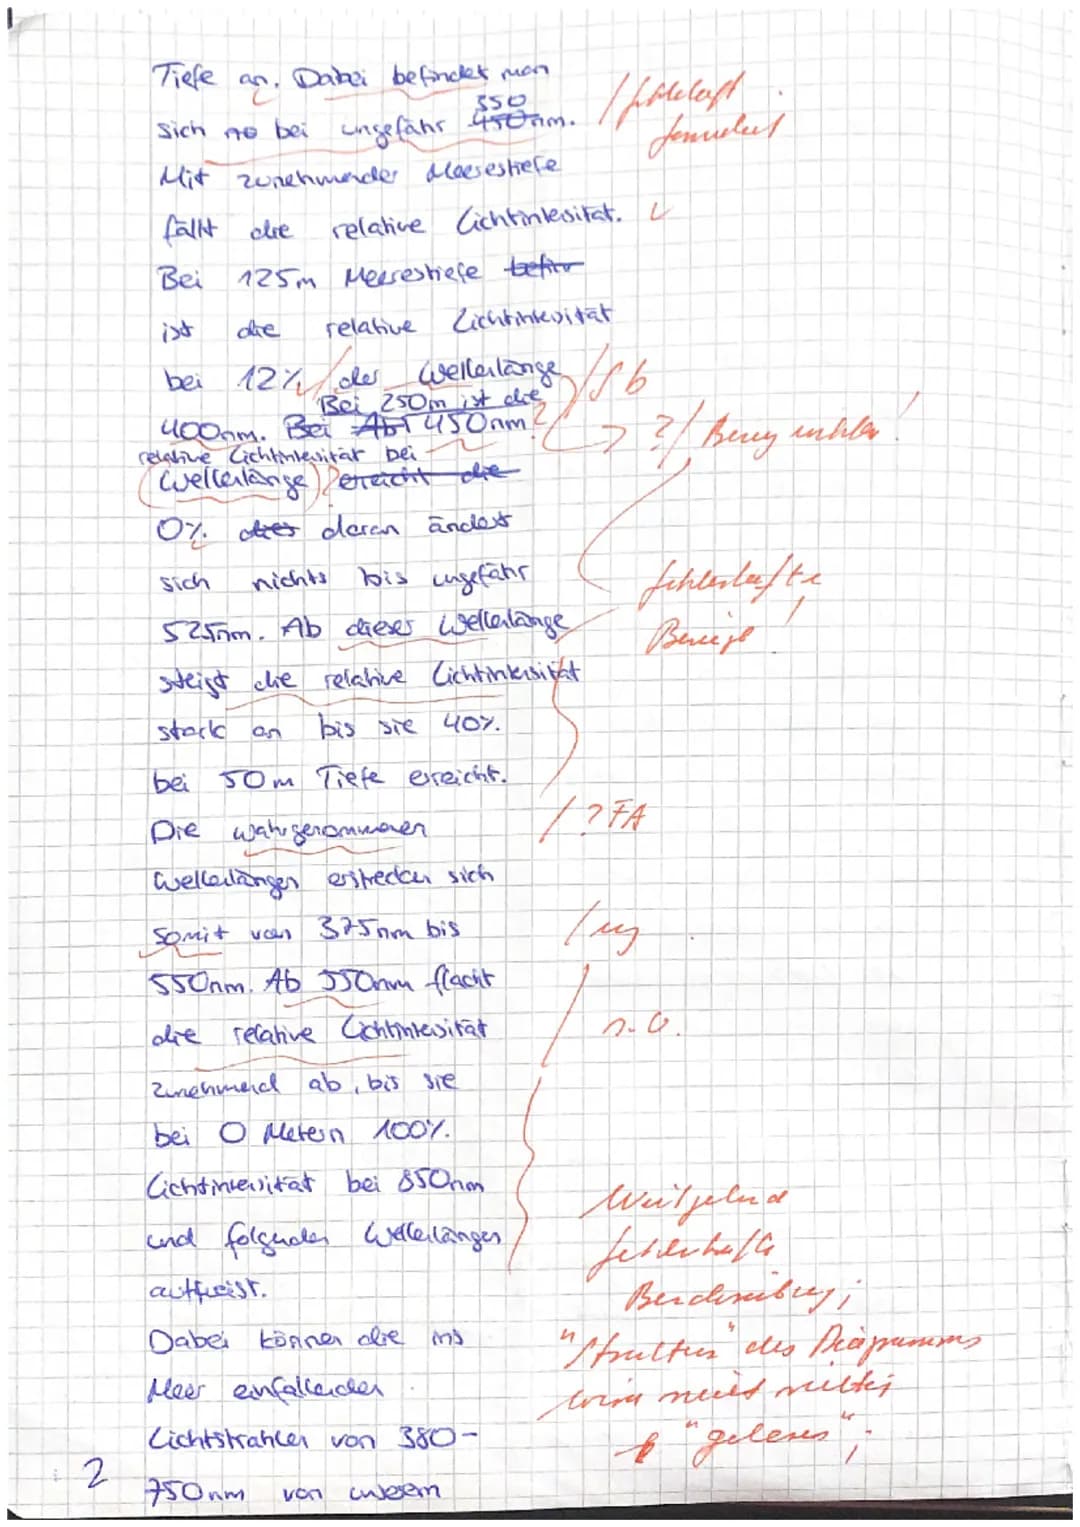 Tiefe an. Dabei befindet man
350
sich bei ungefähr 450nm. / fehlerhaft
formuliert
Mit zunehmender Meerestiefe
fällt die relative Lichtintensität.
Bei 125m Meerestiefe
ist die relative Lichtintensität
bei 12% der Wellenlänge / Sb
Bei 250m ist die
400nm. Bei Ab 450nm ? ? / Bezug unklar!
relative Lichtintensität bei
(Wellenlänge) ? erreicht die
0%. dies daran ändert
sich nichts bis ungefähr fehlerhafte
525nm. Ab dieser Wellenlänge Bezüge!
steigt die relative Lichtintensität
stark an bis sie 40%.
bei 50m Tiefe erreicht.
Die wahrgenommenen / ? FA
Wellenlängen erstrecken sich
somit von 375nm bis / ug
550nm. Ab 550nm flacht
die relative Lichtintensität / s.o.
zunehmend ab, bis sie
bei 0 Metern 100%.
Lichtintensität bei 850nm Weitgehend
und folgenden Wellenlängen fehlerhafte
aufweist. Beschreibung;
Dabei können die ins "Struktur" des Diagramms
Meer einfallenden wird nicht richtig
Lichtstrahlen von 380- "gelesen";
2 750nm von